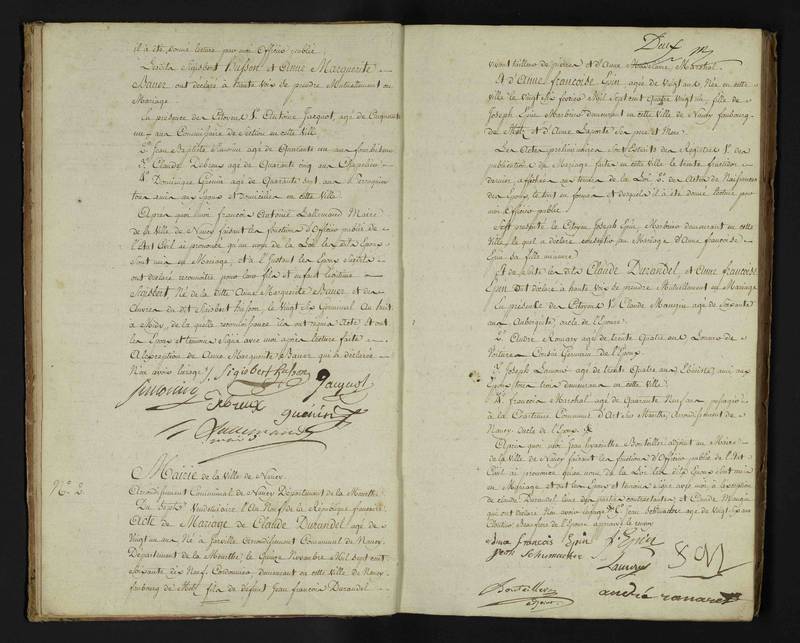 il a été donné lecture par moi Officier public
Lesdits Sigisbert Husson et Anne Marguerite
Bauer ont déclaré à haute voix se prendre Mutuellement en
Mariage
En presence des Citoyens 1.° Antoine Jacquot, agé de Cinquante
un ans Commissaire de Section en cette Ville
2.° Jean Baptiste Simonin agé de Quarante un ans
3.° Claude Debreux agé de Quarante cinq ans Chapelier
4.° Dominique Guenin agé de Quarante sept ans Perruquier
tous amis des Epoux et domiciliés en cette Ville
Apres quoi moi françois Antoine Lallemand Maire
de la Ville de Nancy faisant les fonctions d'Officier public de
l'Etat Civil ai prononcé qu'au nom de la Loi les dits Epoux
sont unis en Mariage, et à l'Instant les Epoux susdits
ont déclaré reconnoitre pour leur fils et enfant légitime
Sigisbert, Né de la ditte Anne Marguerite Bauer et des
œuvres du dit Sigisbert Husson, le Vingt six Germinal An huit
à Midi, de la quelle reconnoissance ils ont requis Acte et ont
les Epoux et temoins signé avec moi après lecture faite
A l'exception de Anne Marguerite Bauer qui a déclaré
Non avoir l'usage
Sigisbert husson
Simonin
Jacquot
Debreux
guenin
Lallemand
maire
N.° 2
Mairie de la Ville de Nancy
Arrondissement Communal de Nancy Département de la Meurthe
Du Sept Vendemiaire l'An Neuf de la Republique française
Acte de Mariage de Claude Durandel agé de
Vingt un ans Né à Jarville Arrondissement Communal de Nancy
Département de la Meurthe, le Quinze Novembre Mil sept cent
soixante dix Neuf, Cordonnier, demeurant en cette Ville de Nancy
faubourg de Metz fils de défunt Jean françois Durandel
Deux
vivant tailleur de pierres et d'Anne Marchal
Et d'Anne françoise Epin agée de Vingt ans Née en cette
Ville le Vingt six fevrier Mil Sept cent quatre Vingt un, fille de
Joseph Epin Marbrier demeurant en cette Ville de Nancy faubourg
de Metz et d'Anne Laporte ses pere et Mere
Les Actes preliminaires sont Extraits des Registres 1.° des
publications de Mariage faites en cette Ville le trente fructidor
dernier, affichées aux termes de la Loi 2.° des Actes de Naissances
des Epoux, le tout en forme et desquels il a été donné lecture par
moi Officier public
S'est presenté le Citoyen Joseph Epin, Marbrier demeurant en cette
Ville, le quel a déclaré consentir au Mariage d'Anne françoise
Epin sa fille mineure
Et de suite les dits Claude Durandel, et Anne françoise
Epin ont déclaré à haute voix se prendre Mutuellement en Mariage
En presence des Citoyens 1.° Claude Maugin agé de soixante
ans Aubergiste, oncle de l'Epoux
2. André Romary agé de trente Quatre ans Loueur de
Voitures Cousin Germain de l'Epoux
3. Joseph agé de trente Quatre ans Ebeniste ami aux
Epoux tous trois demeurans en cette Ville
4.° françois Marchal agé de Quarante Neuf ans
à la Chartreuse Commune d'Art sur Meurthe, Arrondissement de
Nancy, oncle de l'Epoux
Après quoi moi Jean hyacinthe Bouteiller adjoint au Maire
de la Ville de Nancy faisant les fonctions d'Officier public de l'Etat
Civil ai prononcé qu'au nom de la Loi les dits Epoux sont unis
en Mariage et ont les Epoux et temoins signé avec moi, à l'exception
de Claude Durandel l'une des parties contractantes, et Claude Maugin
qui ont déclaré Non avoir l'usage Jean Schumacher agé de Vingt six ans
Cordier Beaufrere de l'Epouse
Anne francois Epin
J Epin
Jean Schumacker
Bouteiller
adjoint
andré romaret